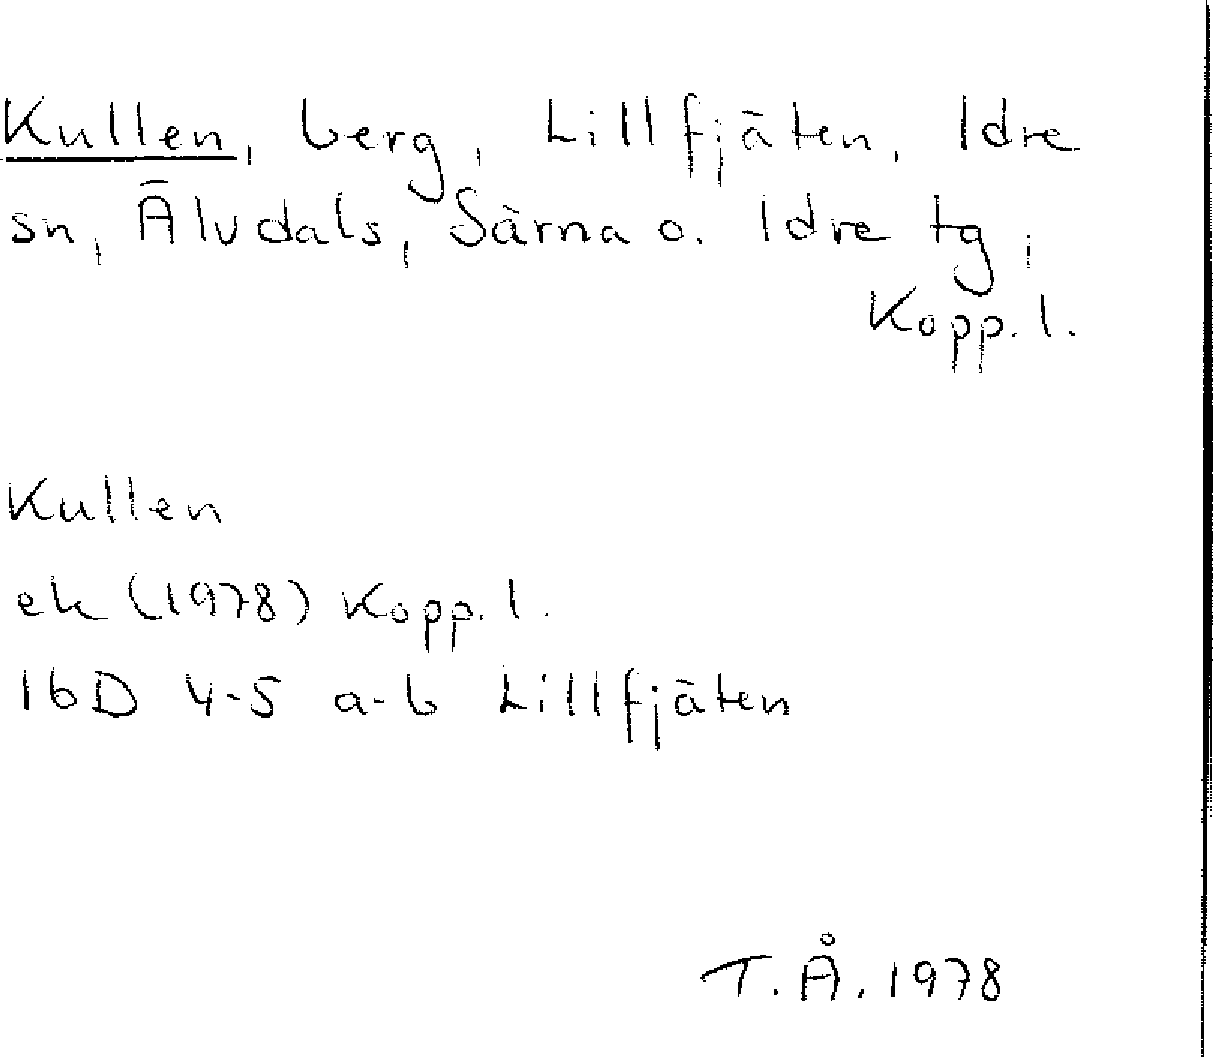 Kullen, berg, Lillfjäten, Idre
sn, Älvdals, Särna o. Idre tg,
Kopp. l.
Kullen
ek (1978) Kopp. l.
16D 4-5 a-b Lillfjäten
T.Å. 1978